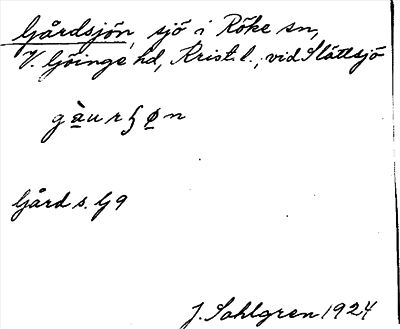 Gårdsjön, sjö i Röke sn,
V. Göinge hd, Krist. l., vid Slättsjö
gàurʂøn
Gård s. G 9
J. Sahlgren 1924